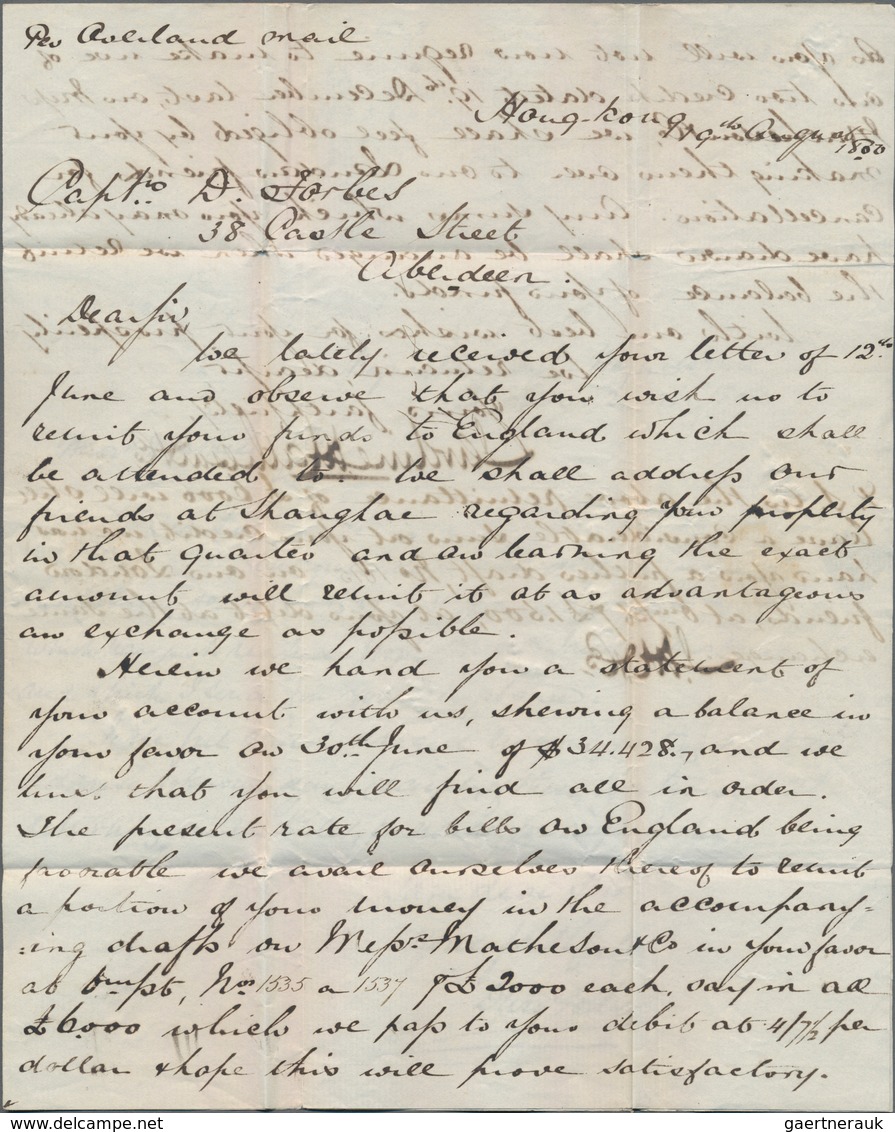 Per Overland mail
Hong-kong 19th August 1850
Captn. D. Forbes
38 Castle Street
Aberdeen.
Dear Sir,
We lately received your letter of 12th
June and observe that you wish us to
remit your funds to England which shall
be attended to. We shall address our
friends at Shanghae regarding your property
in that quarter and on learning the exact
amount will remit it at as advantageous
an exchange as possible.
Herein we hand you a statement of
your account with us, shewing a balance in
your favor on 30th June of $34.428., and we
trust that you will find all in order.
The present rate for bills on England being
favorable we avail ourselves thereof to remit
a portion of your money in the accompany=
=ing drafts on Messrs Matheson & Co in your favor
at 6m/st, Nos 1535 a 1537 of £2000 each, say in all
£6.000 which we pass to your debit at 4/7½ per
dollar & hope this will prove satisfactory.
www.delcampe.net
gaertnerauk